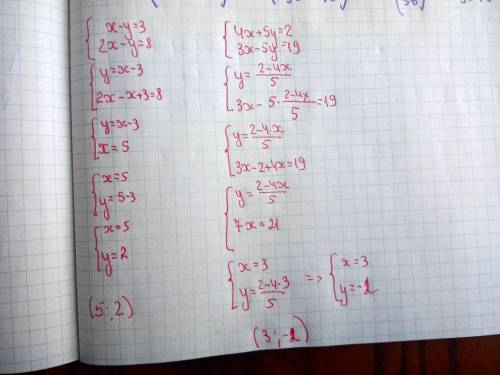 x-y=3
2x-y=8
y=x-3
2x-x+3=8
y=x-3
x=5
x=5
y=5-3
x=5
y=2
(5;2)
4x+5y=2
3x-5y=19
y=2-4x/5
3x-5·2-4x/5=19
y=2-4·x/5
3x-2+4x=19
y=2-4x/5
7x=21
x=3
y=2-4·3/5
=>
x=3
y=-2
(3;-2)